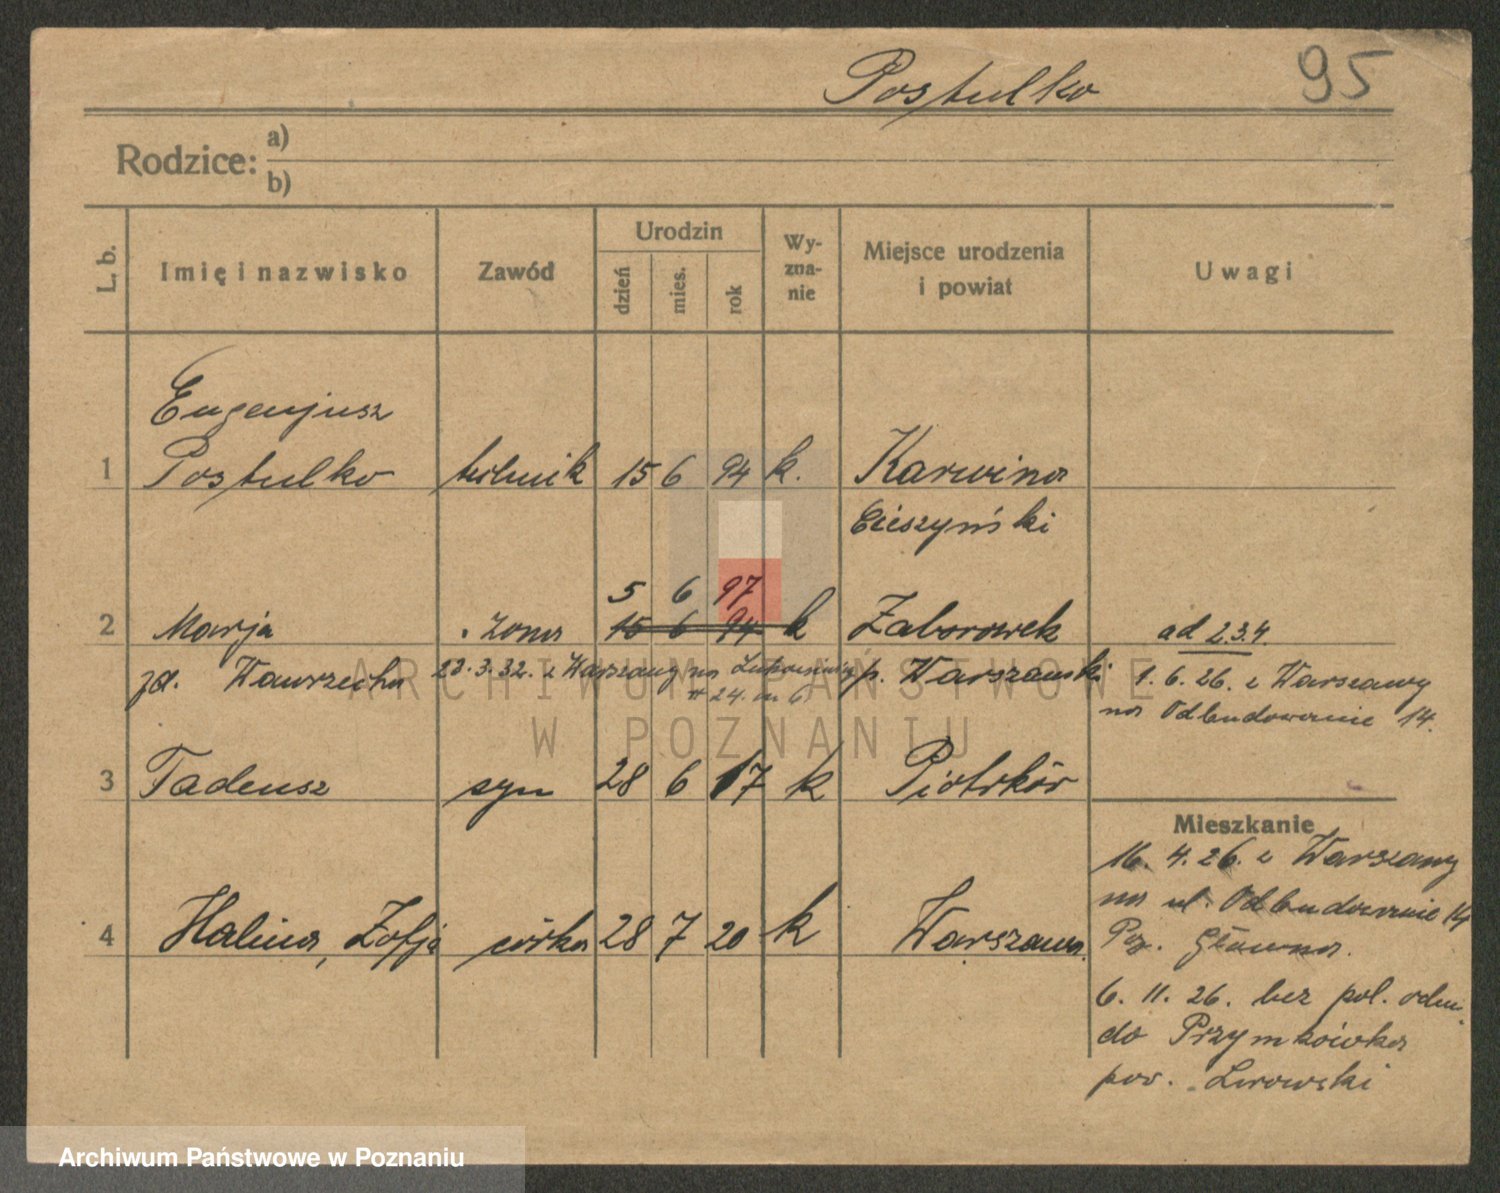 Postulko 95
Rodzice: a)
b)
L. b. Imię i nazwisko Zawód Urodzin dzień mies. rok Wy-zna-nie Miejsce urodzenia i powiat Uwagi
Eugenjusz
1 Postulko 15 6 94 k. Karwina
Cieszyński
5 6 97
2 Marja żona 15 6 94 k Zaborowek ad 2.3.4
zd. Wawrzecha 22.3.32. z Warszawy na p. Warszawski 1.6.26. z Warszawy
24. m 6 na Odbudowanie 14.
3 Tadeusz syn 28 6 17 k Piotrków
Mieszkanie
16. 4. 26. z Warszawy
4 Halina, Zofja córka 28 7 20 k Warszawa na ul. Odbudowanie 14
Poz. Główna.
6. 11. 26. bez pol. odm.
do
pow. Lwowski
ARCHIWUM PAŃSTWOWE
W POZNANIU
Archiwum Państwowe w Poznaniu